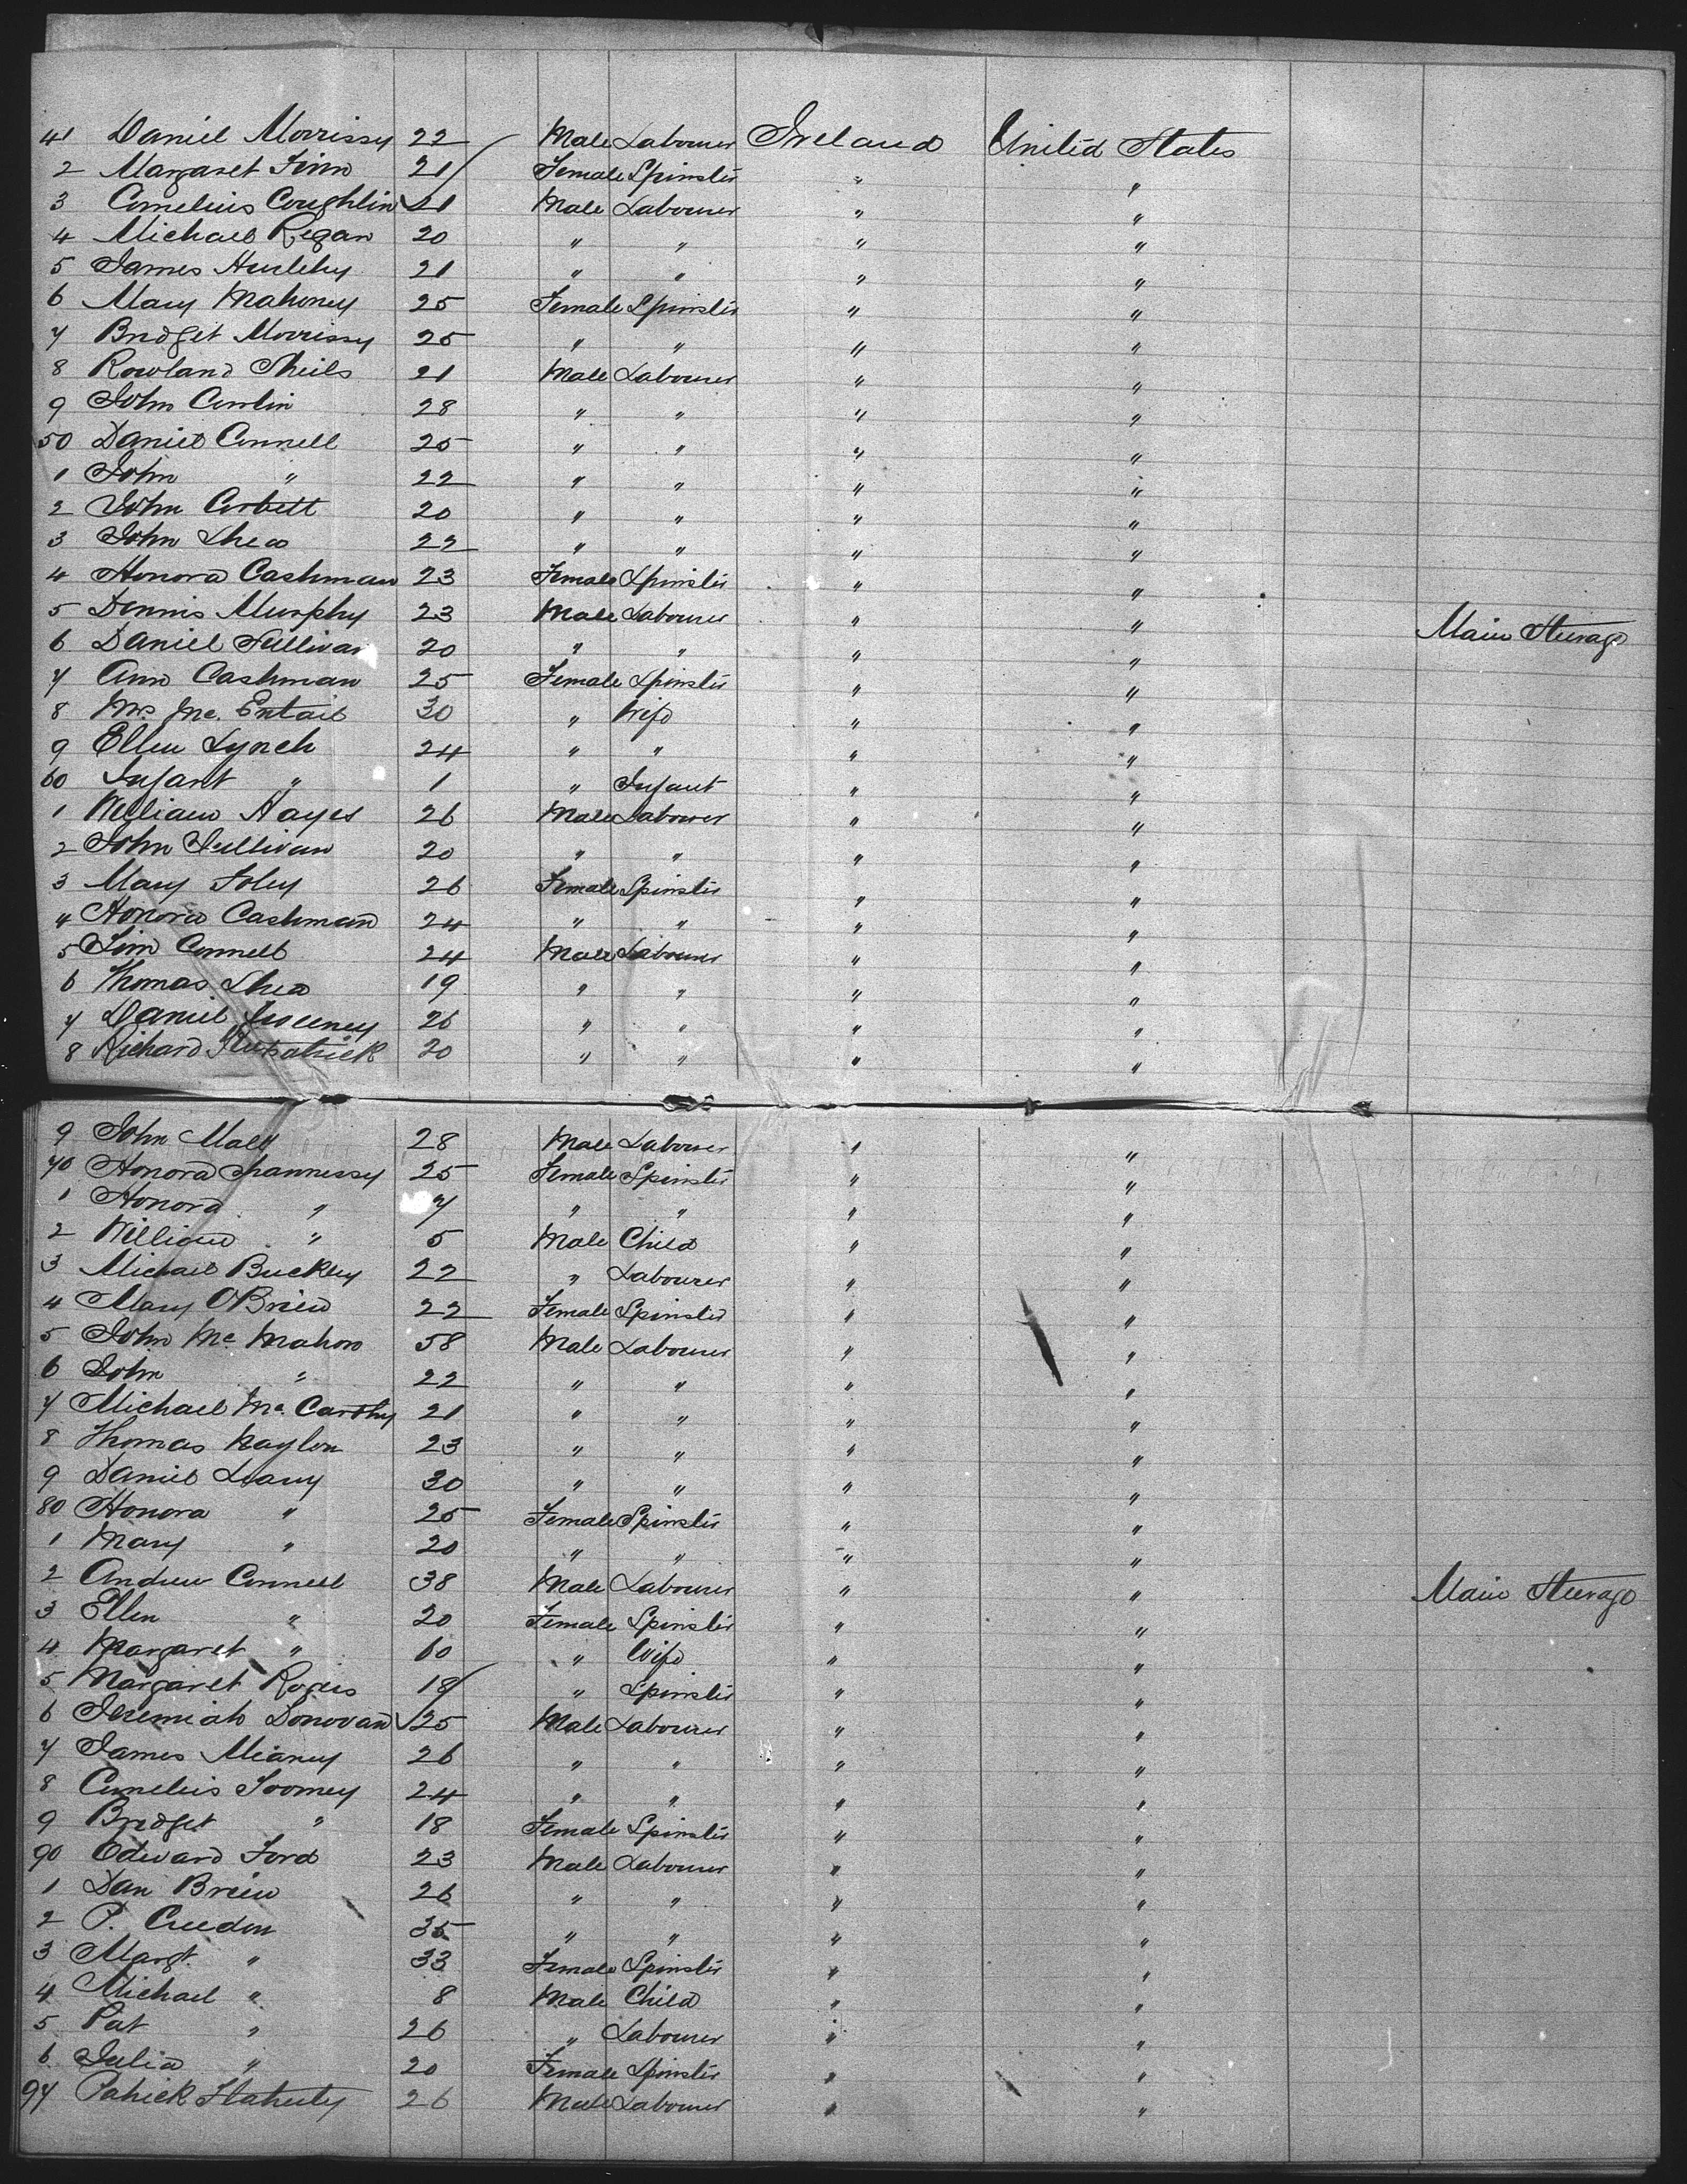 41 Daniel Morrissy 22 Male Labourer Ireland United States
2 Margaret Finn 21 Female Spinster " "
3 Cornelius Coughlin 21 Male Labourer " "
4 Michael Regan 20 " " " "
5 James Hurlehy 21 " " " "
6 Mary Mahoney 25 Female Spinster " "
7 Bridget Morrissy 25 " " " "
8 Rowland Sheils 21 Male Labourer " "
9 John Conlin 28 " " " "
50 Daniel Connell 25 " " " "
1 John " 22 " " " "
2 John Corbett 20 " " " "
3 John Shea 22 " " " "
4 Honora Cashman 23 Female Spinster " "
5 Dennis Murphy 23 Male Labourer " " Main Steerage
6 Daniel Sullivan 20 " " " "
7 Ann Cashman 25 Female Spinster " "
8 Mrs Mc. Entail 30 " Wife " "
9 Ellen Lynch 24 " " " "
60 Infant " 1 " Infant " "
1 William Hayes 26 Male Labourer " "
2 John Sullivan 20 " " " "
3 Mary Foley 26 Female Spinster " "
4 Honora Cashman 24 " " " "
5 Tim Connell 24 Male Labourer " "
6 Thomas Shea 19 " " " "
7 Daniel Sweeney 26 " " " "
8 Richard Fitzpatrick 20 " " " "
9 John Mall 28 Male Labourer " "
70 Honora Shannessy 25 Female Spinster " "
1 Honora " 7 " " " "
2 William " 5 Male Child " "
3 Michael Buckley 22 " Labourer " "
4 Mary O'Brien 22 Female Spinster " "
5 John Mc Mahon 58 Male Labourer " "
6 John " 22 " " " "
7 Michael Mc. Carthy 21 " " " "
8 Thomas Naylon 23 " " " "
9 Daniel Leary 30 " " " "
80 Honora " 25 Female Spinster " "
1 Mary " 20 " " " "
2 Andrew Connell 38 Male Labourer " " Main Steerage
3 Ellen " 20 Female Spinster " "
4 Margaret " 60 " Wife " "
5 Margaret Rogers 18 " Spinster " "
6 Jeremiah Donovan 25 Male Labourer " "
7 James Meaney 26 " " " "
8 Cornelius Toomey 24 " " " "
9 Bridget " 18 Female Spinster " "
90 Edward Ford 23 Male Labourer " "
1 Dan Brien 26 " " " "
2 P. Creedon 35 " " " "
3 Margt. " 33 Female Spinster " "
4 Michael " 8 Male Child " "
5 Pat " 26 " Labourer " "
6 Julia " 20 Female Spinster " "
97 Patrick Flaherty 26 Male Labourer " "